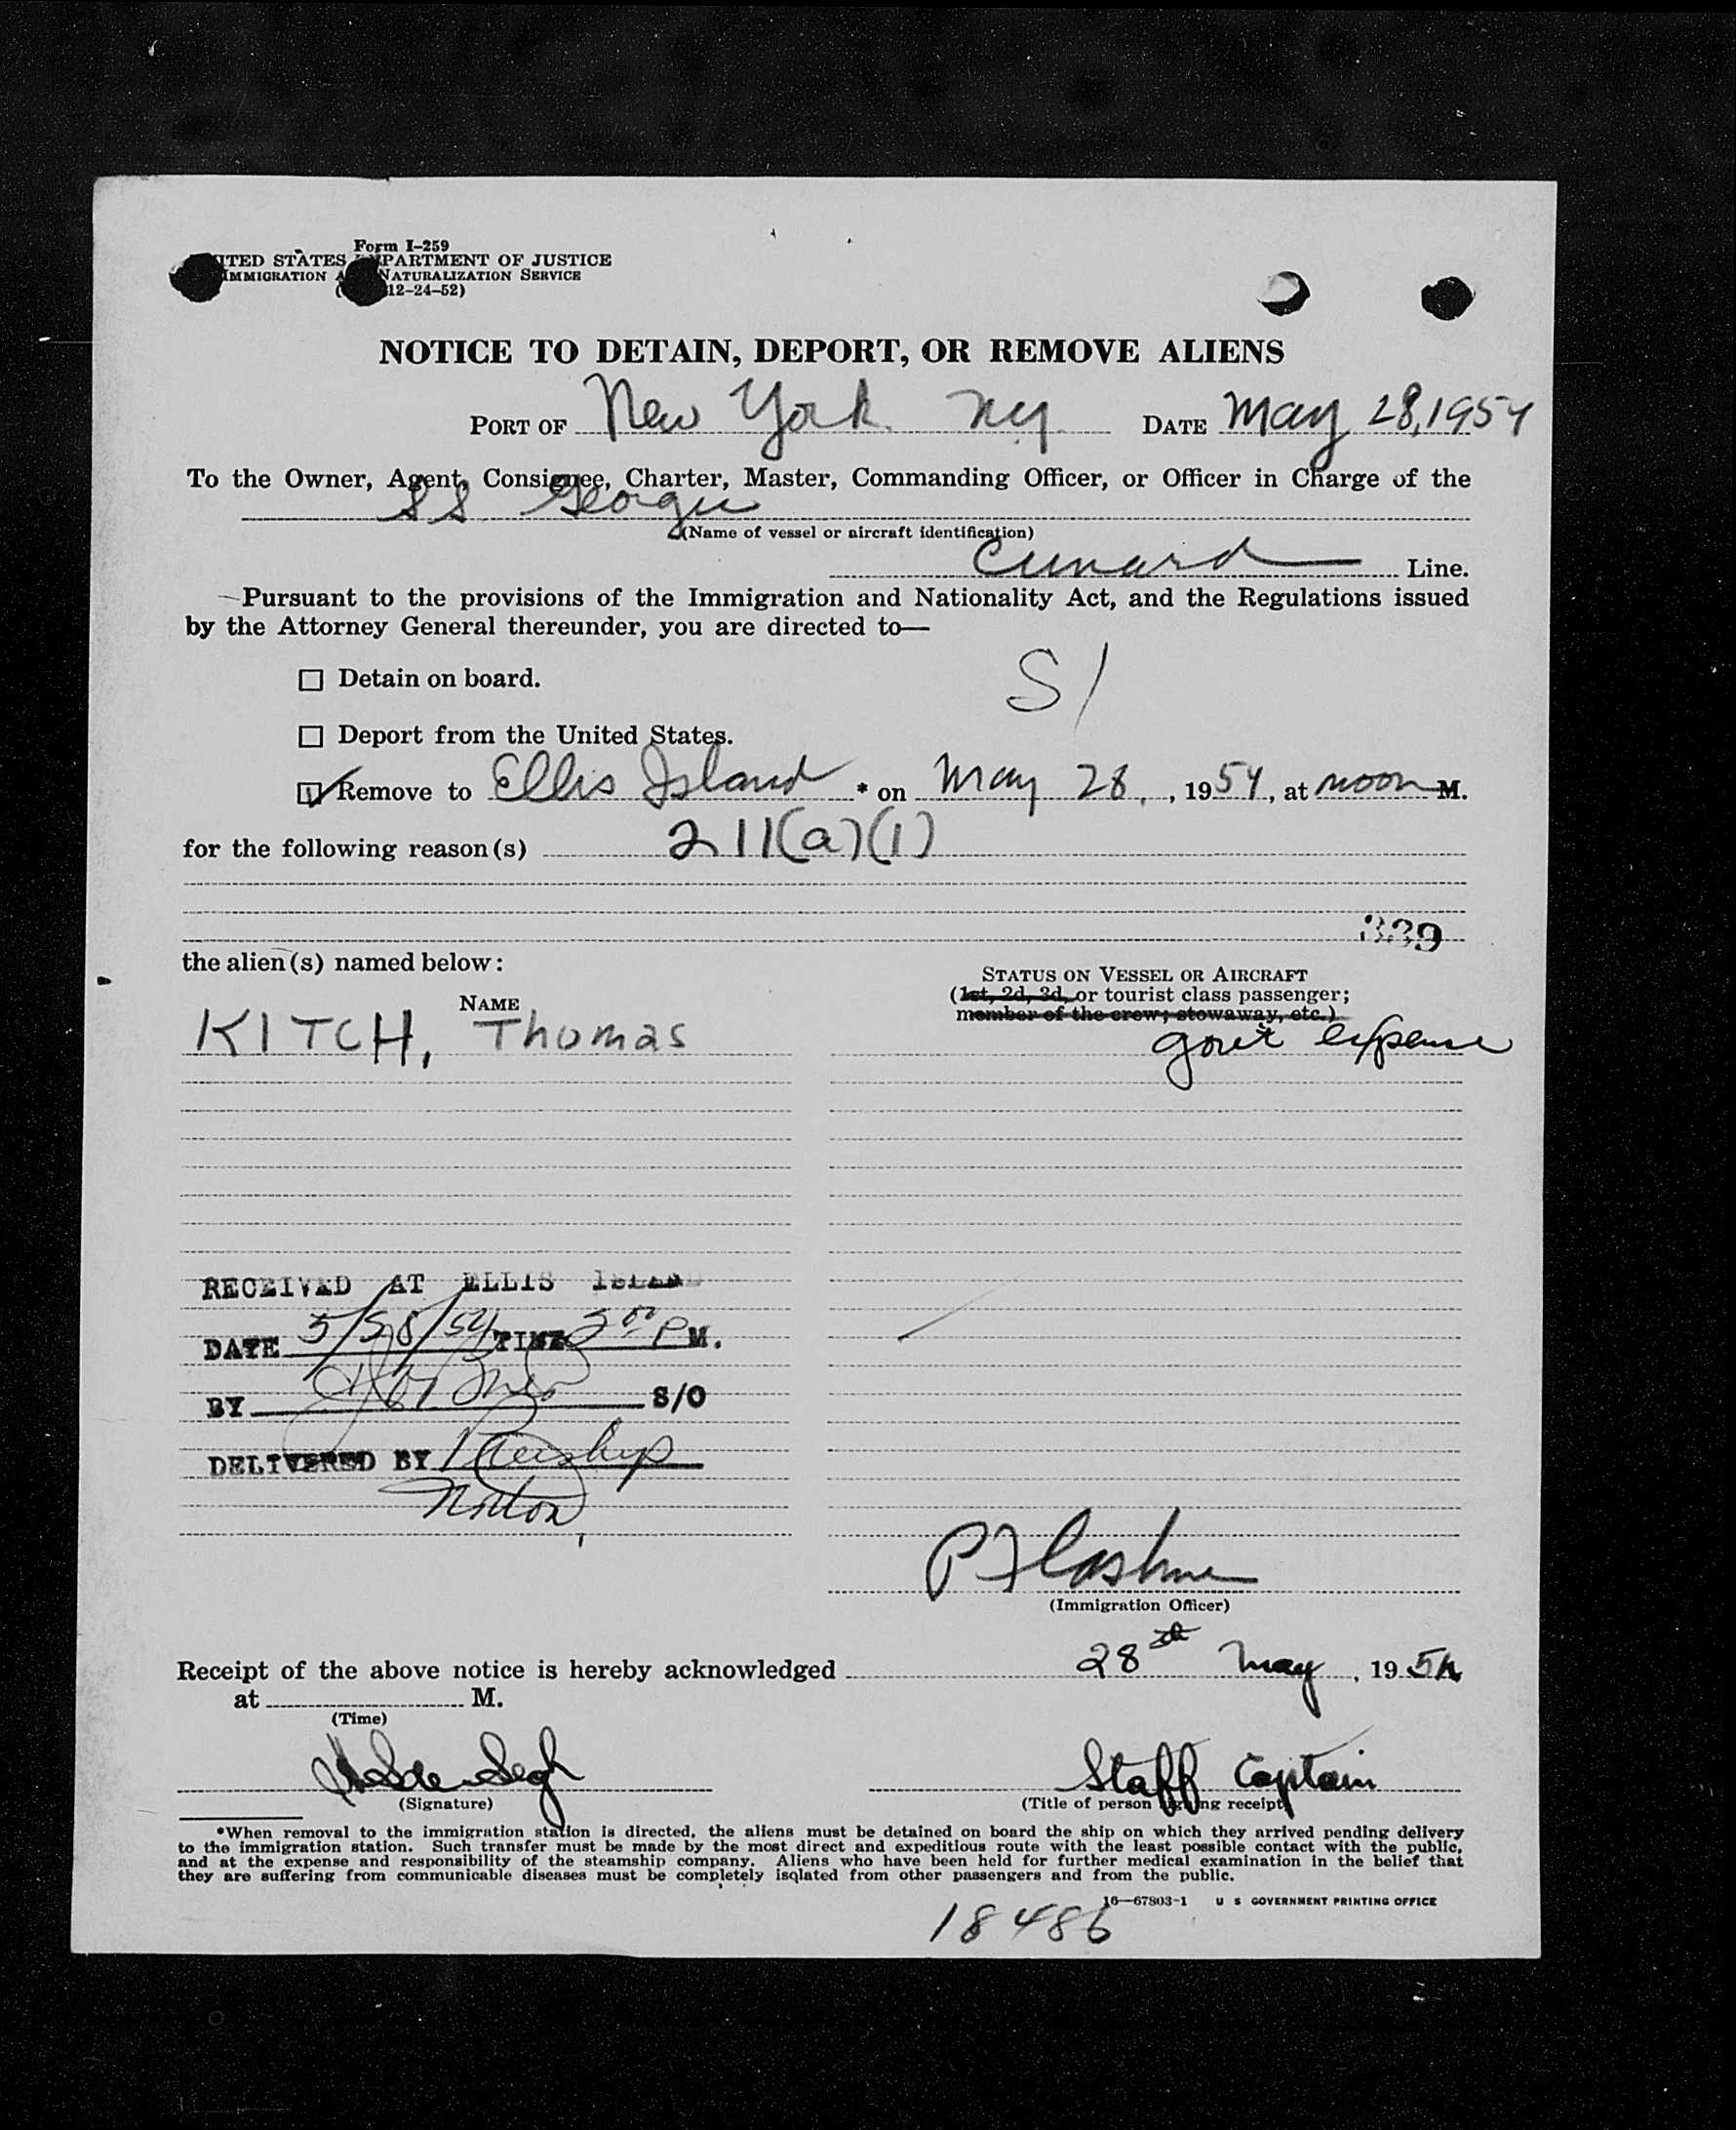 Form I-259
ITED STATES PARTMENT OF JUSTICE
IMMIGRATION A NATURALIZATION SERVICE
( 12-24-52)
NOTICE TO DETAIN, DEPORT, OR REMOVE ALIENS
PORT OF New York NY. DATE May 28, 1954
To the Owner, Agent, Consignee, Charter, Master, Commanding Officer, or Officer in Charge of the
SS Georgic
(Name of vessel or aircraft identification)
Cunard Line.
Pursuant to the provisions of the Immigration and Nationality Act, and the Regulations issued
by the Attorney General thereunder, you are directed to—
☐ Detain on board.
SI
☐ Deport from the United States.
☑ Remove to Ellis Island * on May 28, , 1954, at noon M.
for the following reason(s) 211(a)(1)
339
the alien(s) named below:
STATUS ON VESSEL OR AIRCRAFT
(1st, 2d, 3d, or tourist class passenger;
member of the crew; stowaway, etc.)
NAME
KITCH, Thomas
gov't expense
RECEIVED AT ELLIS ISLAND
DATE 5/28/54 TIME 2 00 P M.
BY S/O
DELIVERED BY
Norton
(Immigration Officer)
Receipt of the above notice is hereby acknowledged 28th May, 1954
at M.
(Time)
Staff Captain
(Signature)
(Title of person signing receipt)
*When removal to the immigration station is directed, the aliens must be detained on board the ship on which they arrived pending delivery
to the immigration station. Such transfer must be made by the most direct and expeditious route with the least possible contact with the public,
and at the expense and responsibility of the steamship company. Aliens who have been held for further medical examination in the belief that
they are suffering from communicable diseases must be completely isolated from other passengers and from the public.
16—67803-1 U S GOVERNMENT PRINTING OFFICE
18486